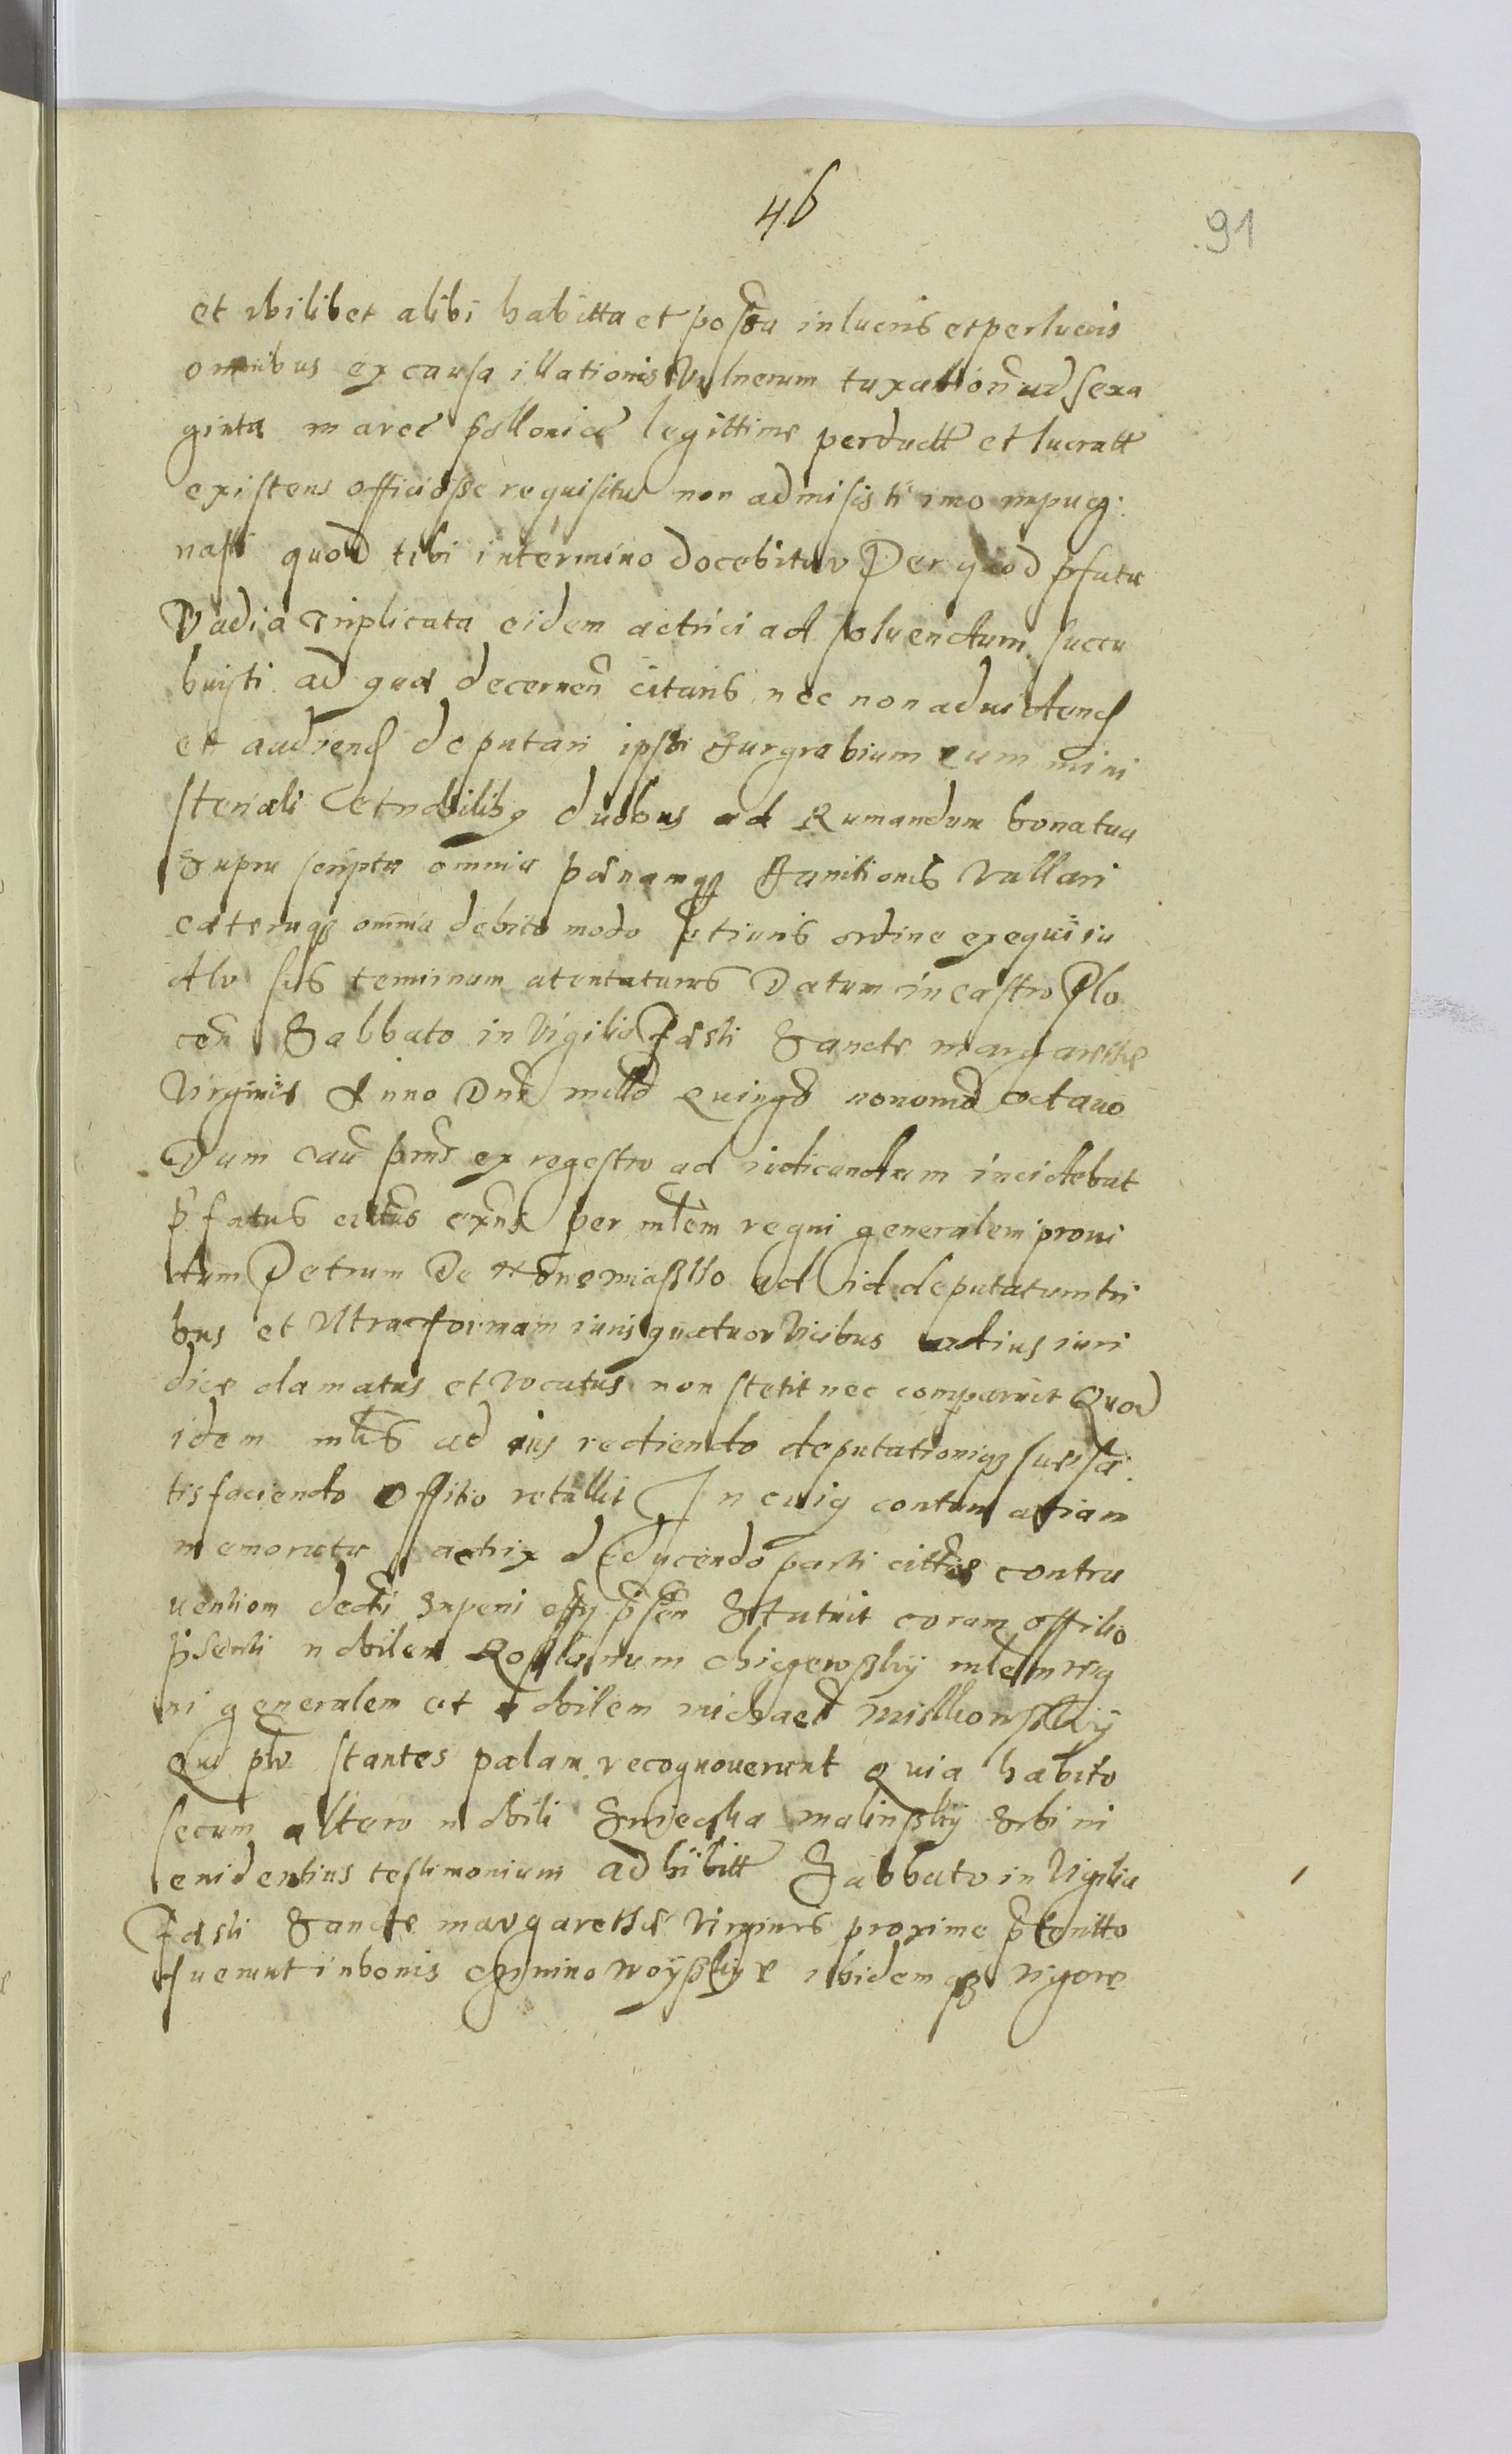 46
91
et vbilibet alibi habitta et possa in lucris et per lucris
omnibus ex causa illationis Vulnerum taxation ad sexa
ginta marcc pollonice legittime perductt et lucratt
existens officiosse requisitus non admisisti imo inpug:
nasti quod tibi in termino docebitur Per quod pfata
Vadia triplicata eidem actrici ad soluendum succu
buisti ad quæ decernen citaris nec non ad uidend
et audiend deputari ipsi Burgrabium cum mini
steriali et nobilibq duobus ad Rumandum bona tua
Supra scripta omnia pænamq Banitionis Vallari
cæteraq omnia debito modo et iuris ordine exequi iu
dtr sis terminum atentaturus Datum in castro Plo
cen Sabbato in Vigilia Fæsti Sancte margarethe
Virginis Anno Dni millo Quingo nonomo octauo
Dum caū prns ex regestro ad iudicandum incidebat
p fatus cittus exns per mlem regni generalem proui
dum Petrum De ad id deputatum tri
bus et Vltra formam iuris quatuor Vicibus actius iuri
dice clamatus et vocatus non stetit nec comparuit Quod
idem mlis ad ius reddendo deputationiq suæ sa
tisfaciendo Offitio retullit In cuiq contumatiam
memorata actrix deducendo parti cittæ contra
uentiom decti Superi offy psen Statuit coram offitio
psenti nobilem mlem reg
ni generalem et nobilem michael
Qui pri stantes palam recognouerunt Quia habito
secum altero nobili malinsky Sibi in
euidentius testimonium adhibitt Sabbato in Vigilia
Fæsti Sancte margarethæ Virginis proxime pteritto
fuerunt in bonis ibidemq vigore